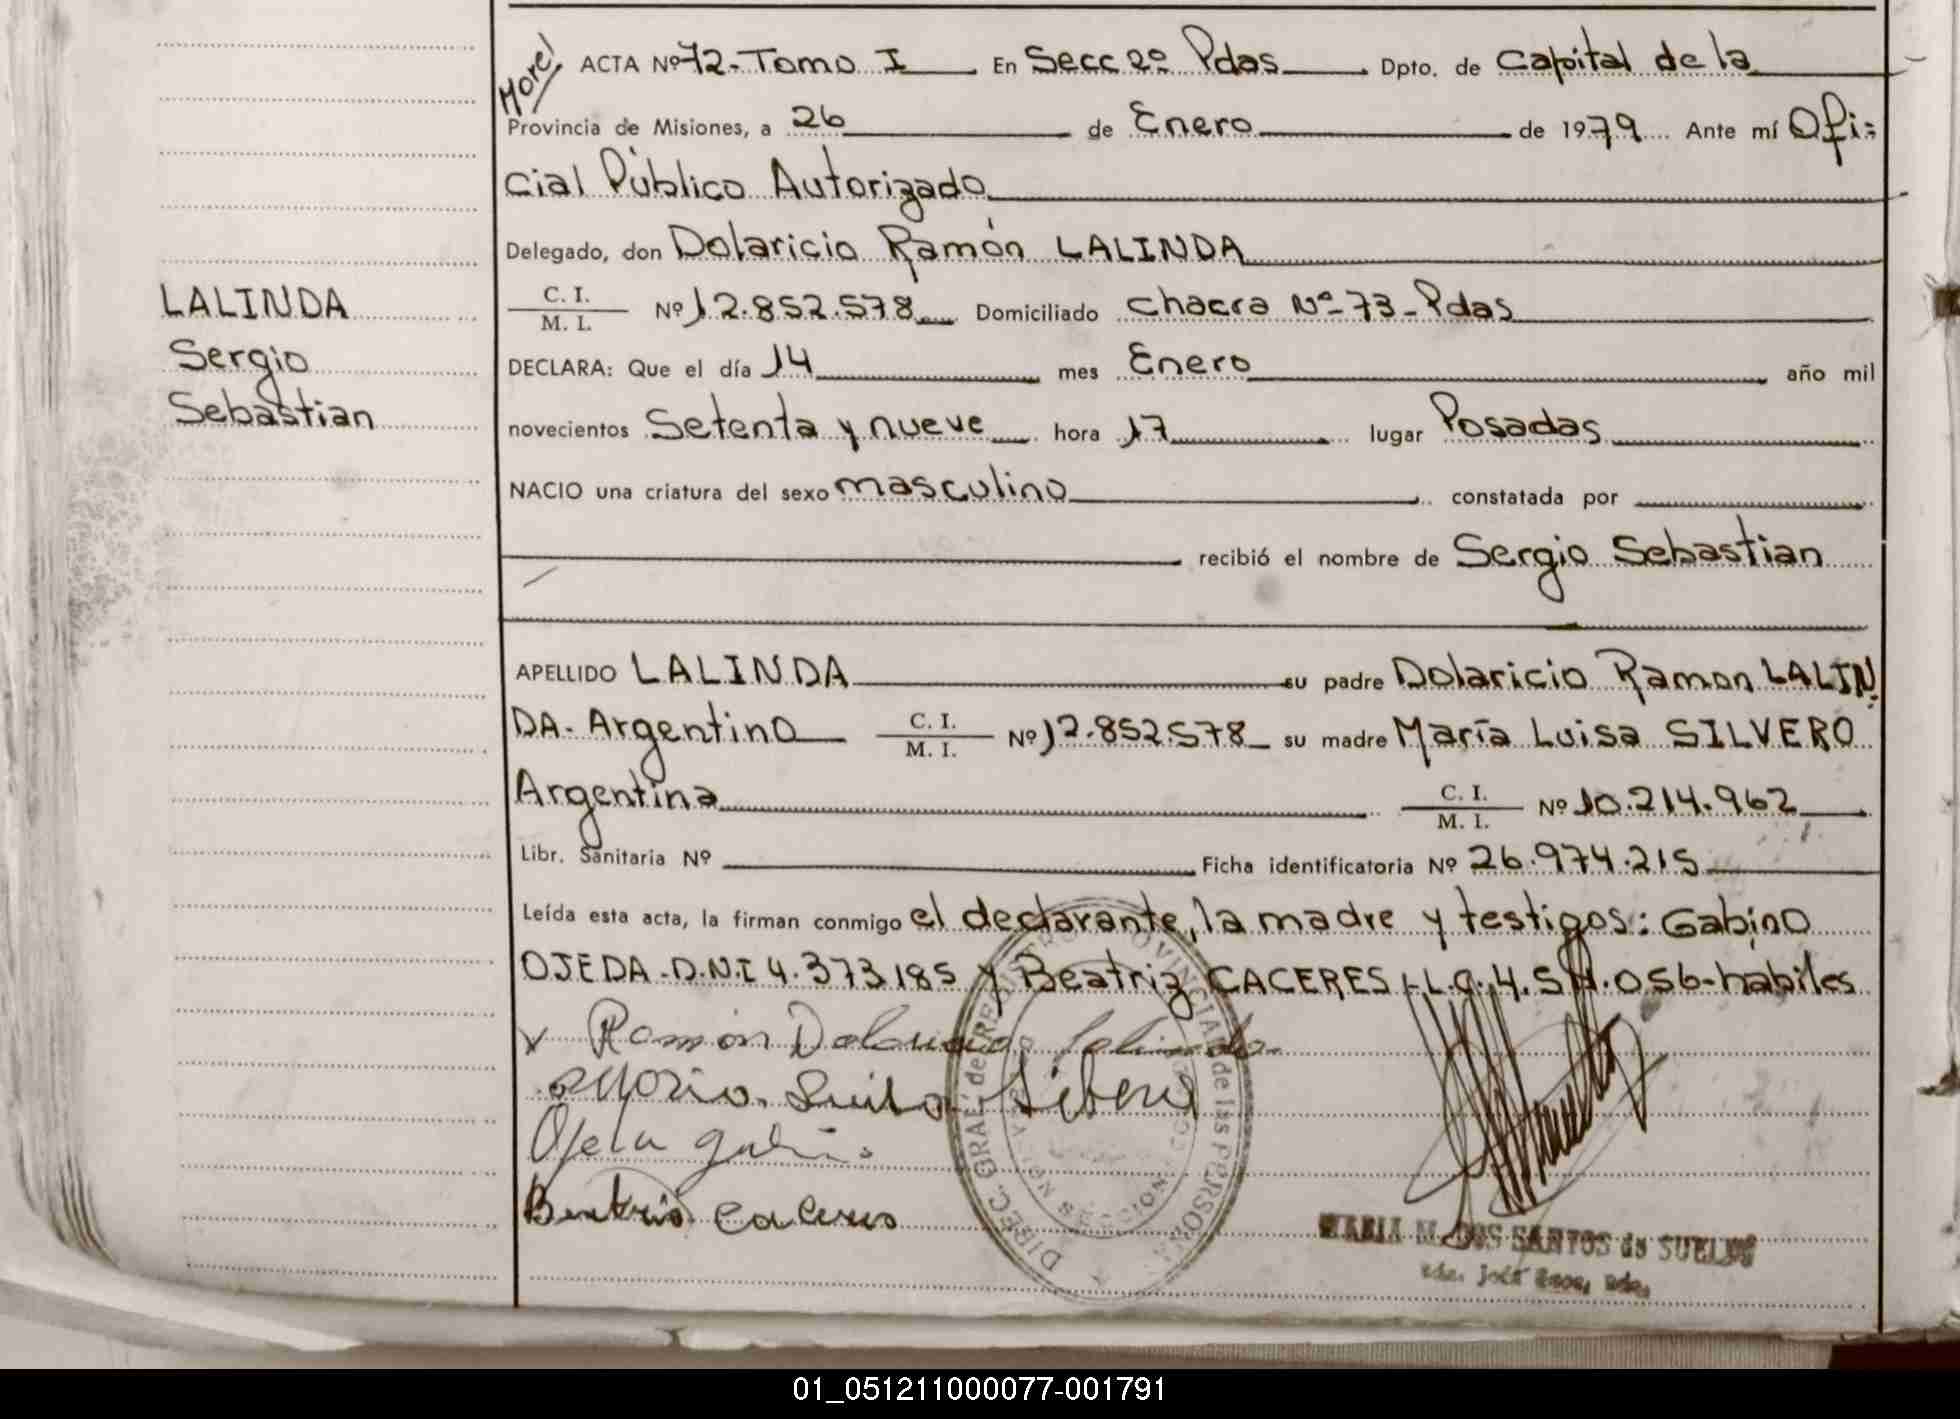 Morel
ACTA Nº 72-Tomo I En Secc 2º Pdas Dpto. de Capital de la
Provincia de Misiones, a 26 de Enero de 1979 Ante mí Ofi=
cial Público Autorizado
Delegado, don Dolaricio Ramón LALINDA
C. I.
M. I. Nº 12.852.578 Domiciliado chacra Nº-73-Pdas
DECLARA: Que el día 14 mes Enero año mil
novecientos Setenta y nueve hora 17 lugar Posadas
NACIO una criatura del sexo masculino constatada por
recibió el nombre de Sergio Sebastian
LALINDA
Sergio
Sebastian
APELLIDO LALINDA su padre Dolaricio Ramon LALIN
DA-Argentino C. I. M. I. Nº 12.852.578 su madre María Luisa SILVERO
Argentina C. I. M. I. Nº 10.214.962
Libr. Sanitaria Nº Ficha identificatoria Nº 26.974.215
Leída esta acta, la firman conmigo el declarante, la madre y testigos: Gabino
OJEDA-D.N.I 4.373.185 y Beatriz CACERES-L.C.4.5 .056-habiles
x Ramón
Luisa
Ojeda
Beatris Caceres
DIREC. GRAL. de REGISTRO PROVINCIAL de las PERSONAS
MARIA M. DOS SANTOS de SUELOS
01_051211000077-001791